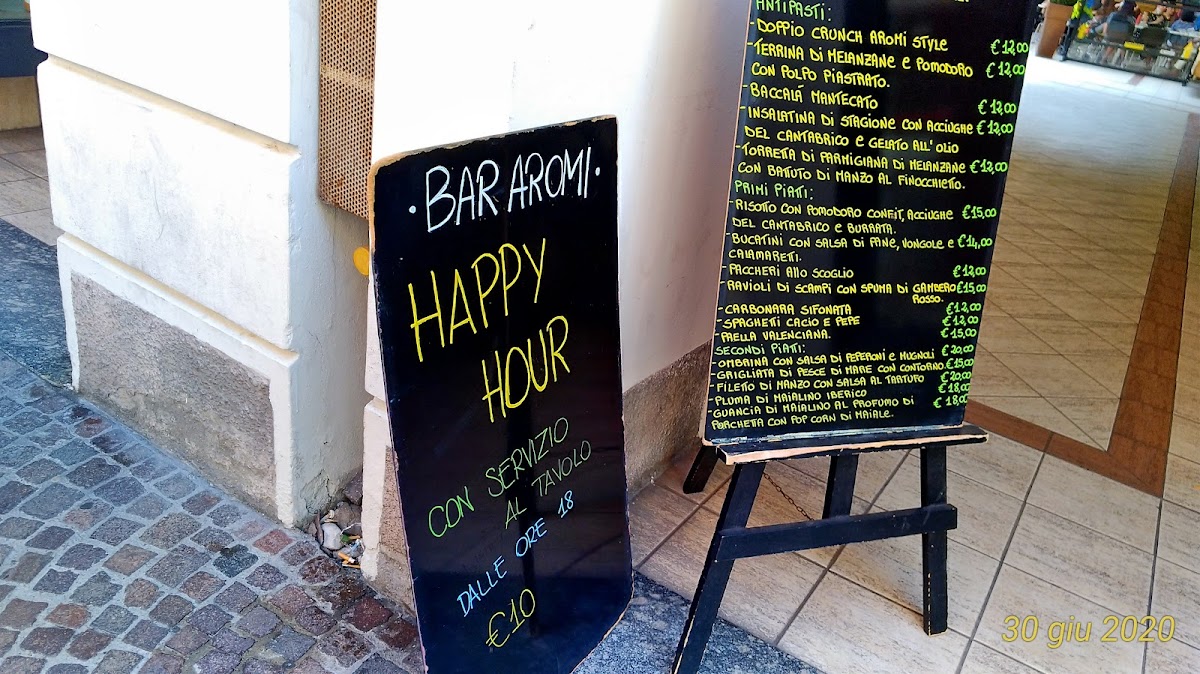 · BAR AROMI ·
HAPPY
HOUR
CON SERVIZIO
AL TAVOLO
DALLE ORE 18
€10
ANTIPASTI:
- DOPPIO CRUNCH AROMI STYLE € 12,00
- TERRINA DI MELANZANE E POMODORO € 12,00
CON POLPO PIASTRATO.
- BACCALÁ MANTECATO € 12,00
- INSALATINA DI STAGIONE CON ACCIUGHE € 12,00
DEL CANTABRICO E GELATO ALL'OLIO
- TORRETTA DI PARMIGIANA DI MELANZANE € 12,00
CON BATTUTO DI MANZO AL FINOCCHIETTO.
PRIMI PIATTI:
- RISOTTO CON POMODORO CONFIT, ACCIUGHE € 15,00
DEL CANTABRICO E BURRATA.
- BUCATINI CON SALSA DI PANE, VONGOLE E € 14,00
CALAMARETTI.
- PACCHERI ALLO SCOGLIO € 12,00
- RAVIOLI DI SCAMPI CON SPUMA DI GAMBERO € 15,00
ROSSO.
- CARBONARA SIFONATA € 12,00
- SPAGHETTI CACIO E PEPE € 12,00
- PAELLA VALENCIANA. € 15,00
SECONDI PIATTI:
- OMBRINA CON SALSA DI PEPERONI E MUGNOLI € 20,00
- GRIGLIATA DI PESCE DI MARE CON CONTORNO. € 15,00
- FILETTO DI MANZO CON SALSA AL TARTUFO € 20,00
- PLUMA DI MAIALINO IBERICO € 18,00
- GUANCIA DI MAIALINO AL PROFUMO DI € 18,00
PORCHETTA CON POP CORN DI MAIALE.
30 giu 2020